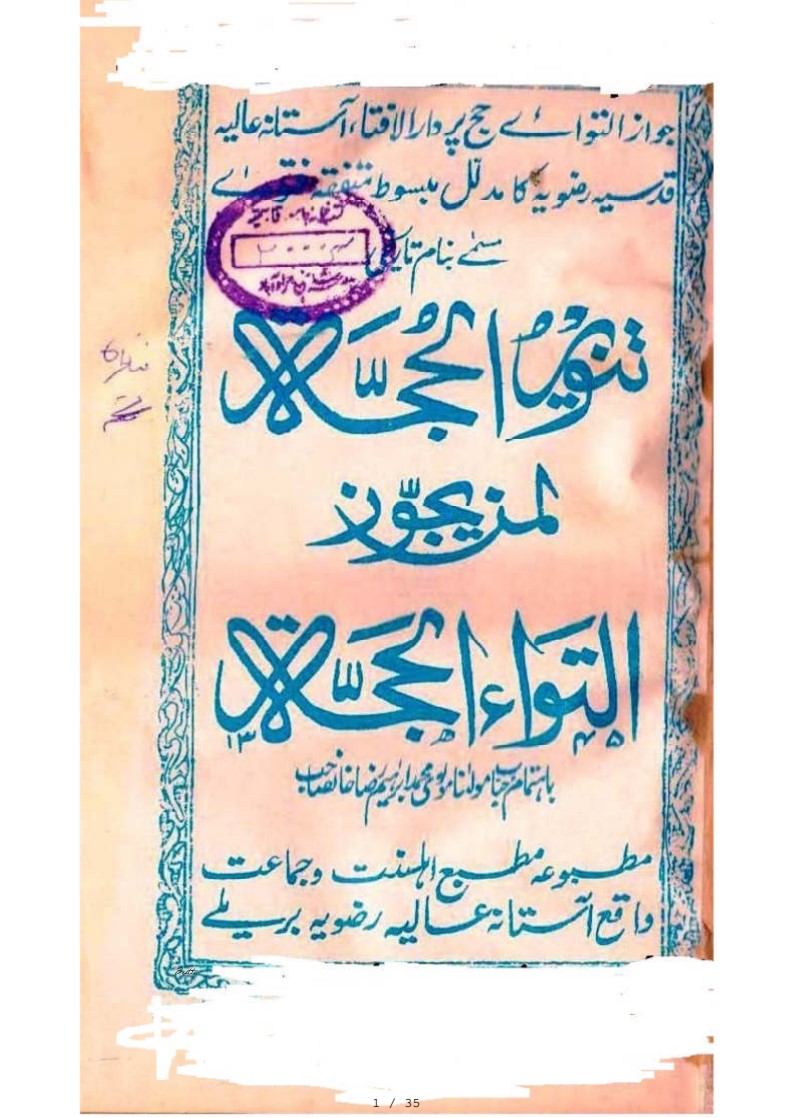 جواز التوائے حج پر دارالافتاء آستانہ عالیہ
قدسیہ رضویہ کا مدلل مبسوط متفقہ فتوائے
مسمے بنام تاریخی
تنویر الحجۃ
لمن یجوز
التواء الحجۃ
۱۳ ۴۵
باہتمام جناب مولانا مولوی محمد ابراہیم رضا خانصاحب
مطبوعہ مطبع اہلسنت وجماعت
واقع آستانہ عالیہ رضویہ بریلے
1 / 35